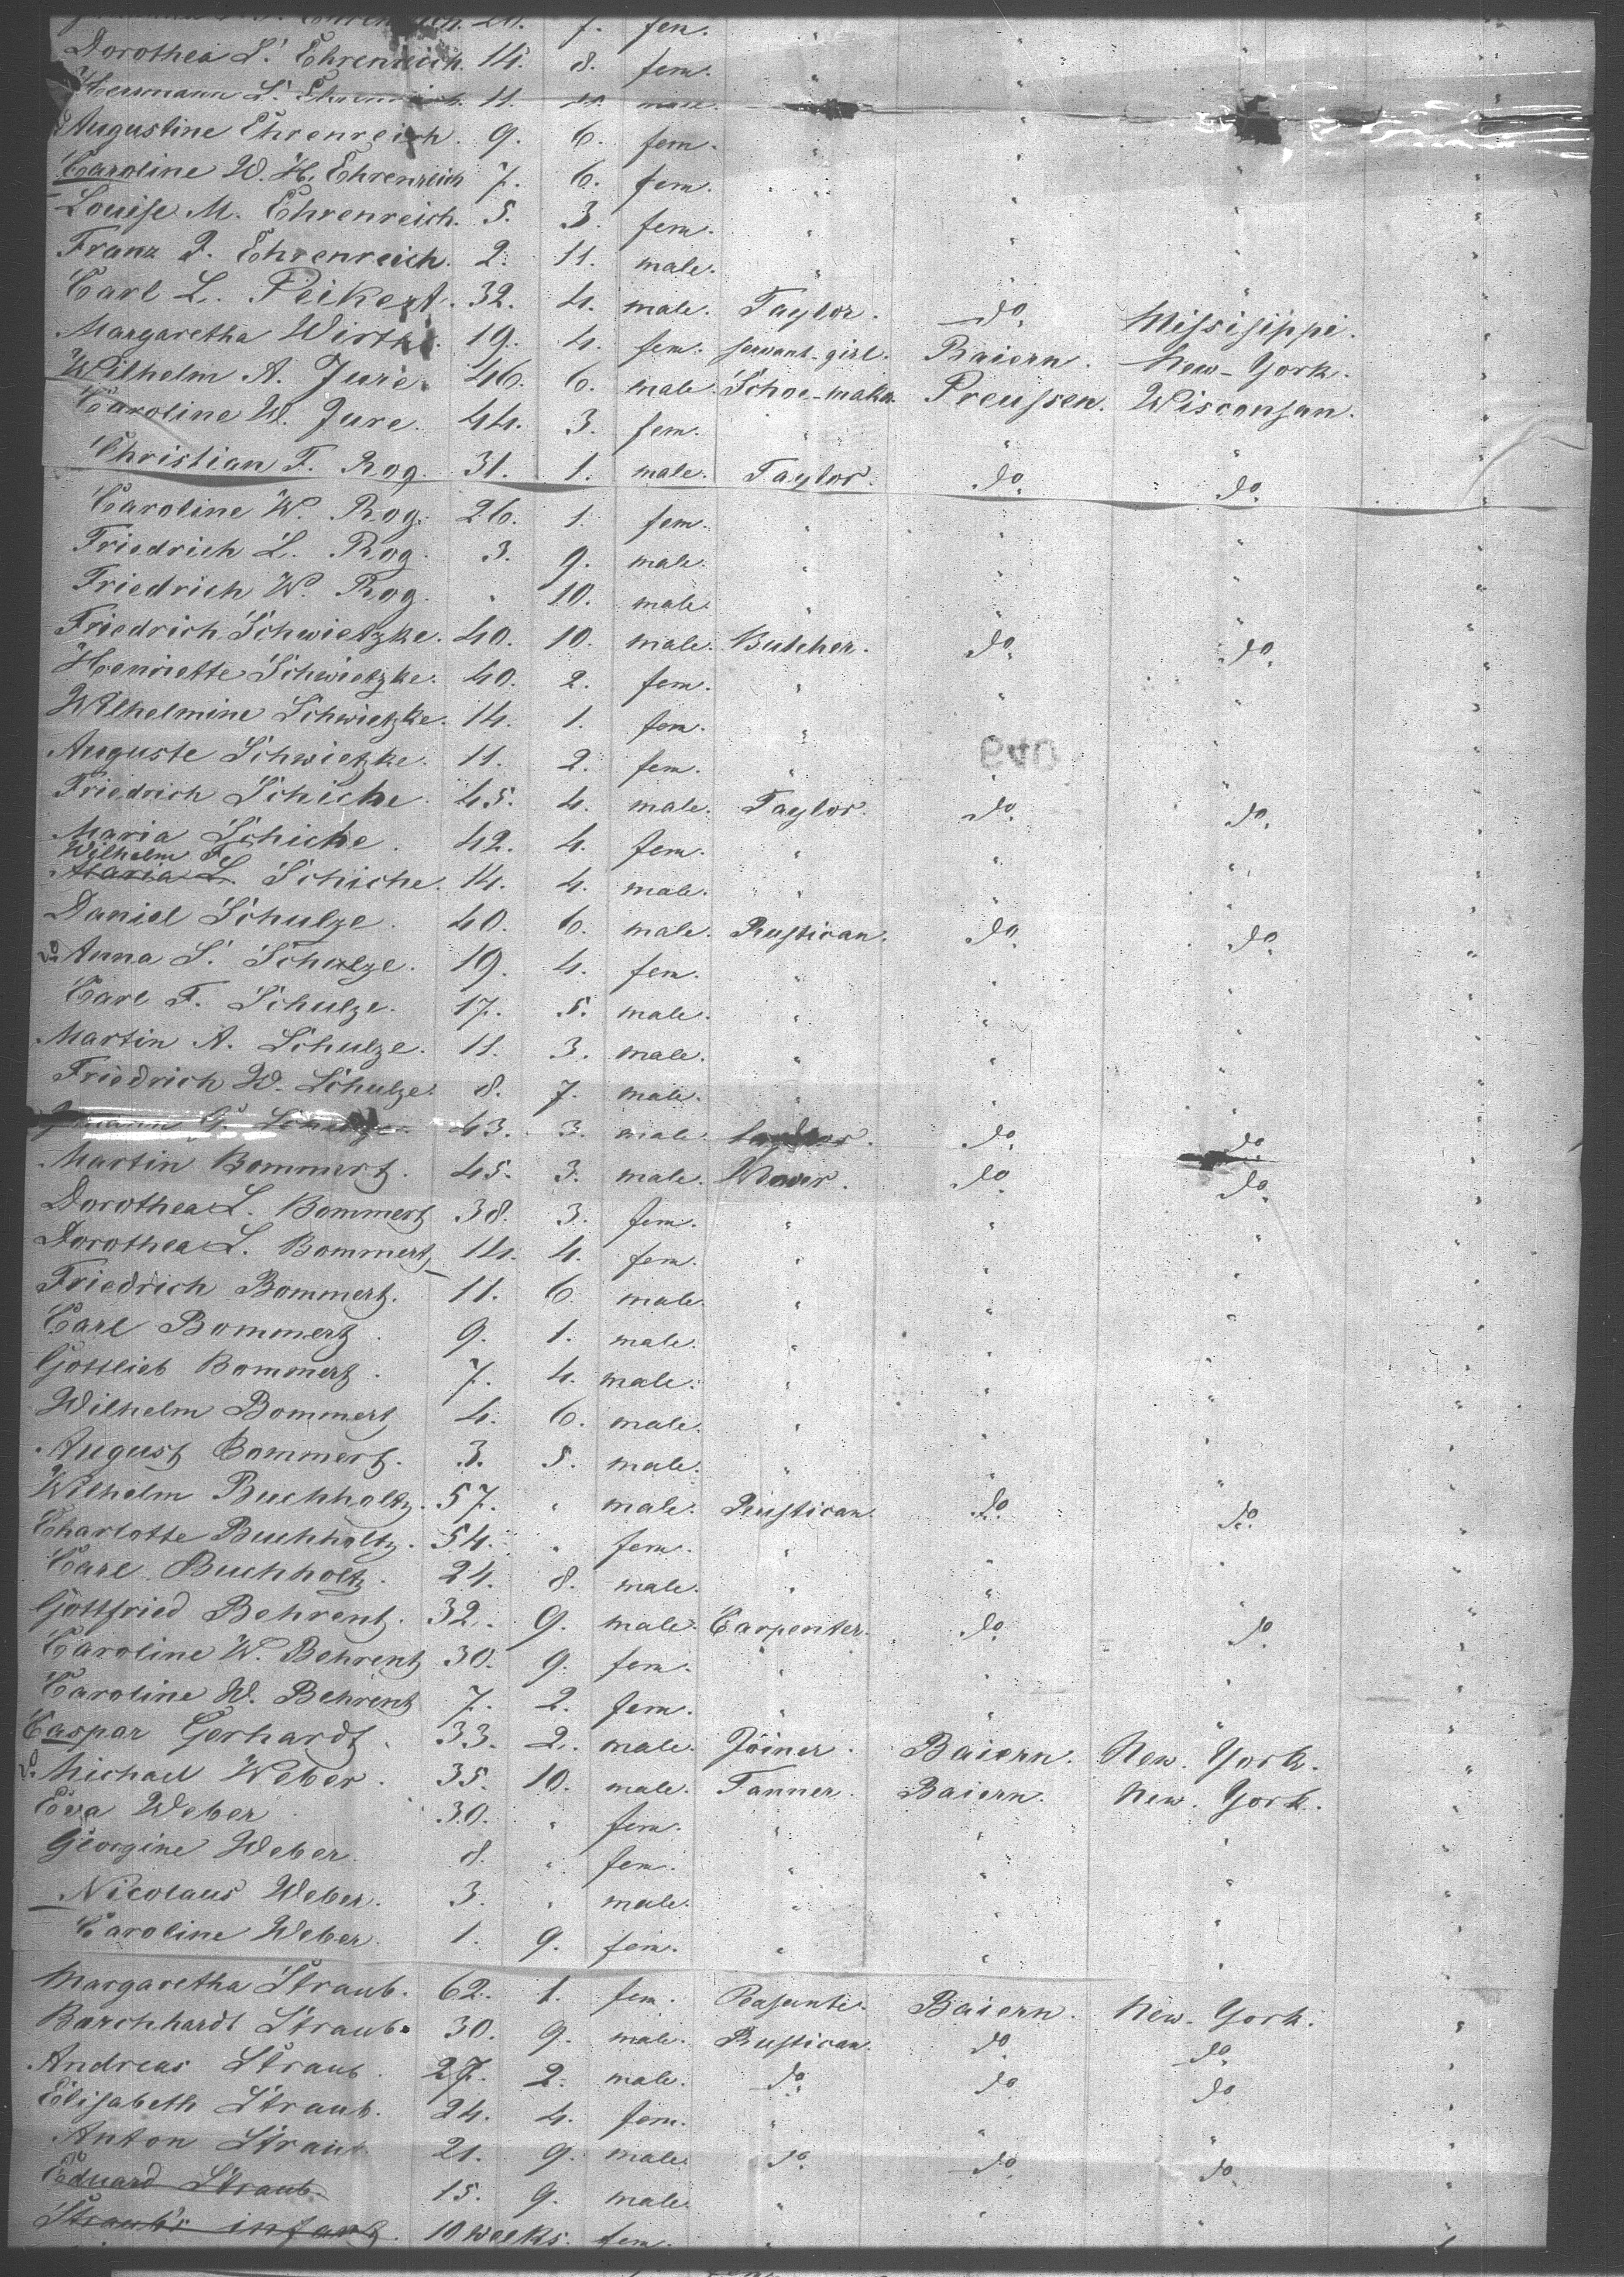 Ehrenreich. 20. 7. fem.
Dorothea L. Ehrenreich. 14. 8. fem. "
Herrmann L. Ehrenreich. 11. 11. male. " "
Augustine Ehrenreich. 9. 6. fem. " " "
Caroline W. H. Ehrenreich 7. 6. fem. " " "
Louise M. Ehrenreich. 5. 3. fem. " " "
Franz F. Ehrenreich. 2. 11. male. " " "
Carl L. Peikert. 32. 4. male. Taylor. do. Missisippi. "
Margaretha Wirth. 19. 4. fem. servant-girl. Baiern. New-York. "
Wilhelm A. Jure. 46. 6. male. Schoe-maker. Preussen. Wisconsan. "
Caroline W. Jure. 44. 3. fem. " " " "
Christian F. Rog. 31. 1. male. Taylor. do. do. "
Caroline W. Rog. 26. 1. fem. " " "
Friedrich L. Rog. 3. 9. male. " " " "
Friedrich W. Rog. " 10. male. " " " "
Friedrich Schwietzke. 40. 10. male. Butcher. do. do. "
Henriette Schwietzke. 40. 2. fem. " " " "
Wilhelmine Schwietzke. 14. 1. fem. " "
Auguste Schwietzke. 11. 2. fem. " " " "
Friedrich Schiche. 45. 4. male. Taylor. do. do. "
Maria Schiche. 42. 4. fem. " " " "
Wilhelm F.
Maria L. Schiche. 14. 4. male. " " " "
Daniel Schulze. 40. 6. male. Rustican. do. do. "
Anna S. Schulze. 19. 4. fem. " " " "
Carl F. Schulze. 17. 5. male. " " " "
Martin A. Schulze. 11. 3. male. " " " "
Friedrich W. Schulze. 8. 7. male. " " " "
G. Schulze. 43. 3. male. Taylor. do. do. "
Martin Bommert. 45. 3. male. Wever. do. do. "
Dorothea L. Bommert 38. 3. fem. " " " "
Dorothea L. Bommert 14. 4. fem. " " " "
Friedrich Bommert. 11. 6. male. " " " "
Carl Bommert. 9. 1. male. " " " "
Gottlieb Bommert. 7. 4. male. " " " "
Wilhelm Bommert 4. 6. male. " " " "
August Bommert. 3. 5. male. " " " "
Wilhelm Buchholtz. 57. " male. Rustican. do. do. "
Charlotte Buchholtz. 54. " fem. " " " "
Carl Buchholtz. 24. 8. male. " " " "
Gottfried Behrent. 32. 9. male. Carpenter. do. do. "
Caroline W. Behrent 30. 9. fem. " " " "
Caroline W. Behrent 7. 2. fem. " " " "
Caspar Gerhardt. 33. 2. male. Joiner. Baiern. New-York. "
Michael Weber. 35. 10. male. Tanner. Baiern. New-York. "
Eva Weber 30. " fem. " " " "
Georgine Weber 8. " fem. " " " "
Nicolaus Weber. 3. " male. " " " "
Caroline Weber 1. 9. fem. " " " "
Margaretha Straub. 62. 1. fem. Peasante. Baiern. New-York. "
Burchhardt Straub. 30. 9. male. Rustican. do. do. "
Andreas Straub. 27. 2. male. do. do. do. "
Elisabeth Straub. 24. 4. fem. " " " "
Anton Straub 21. 9. male. do. do. do. "
Eduard Straub. 15. 9. male. " " " "
Straub's infant. 10 weeks. fem. "